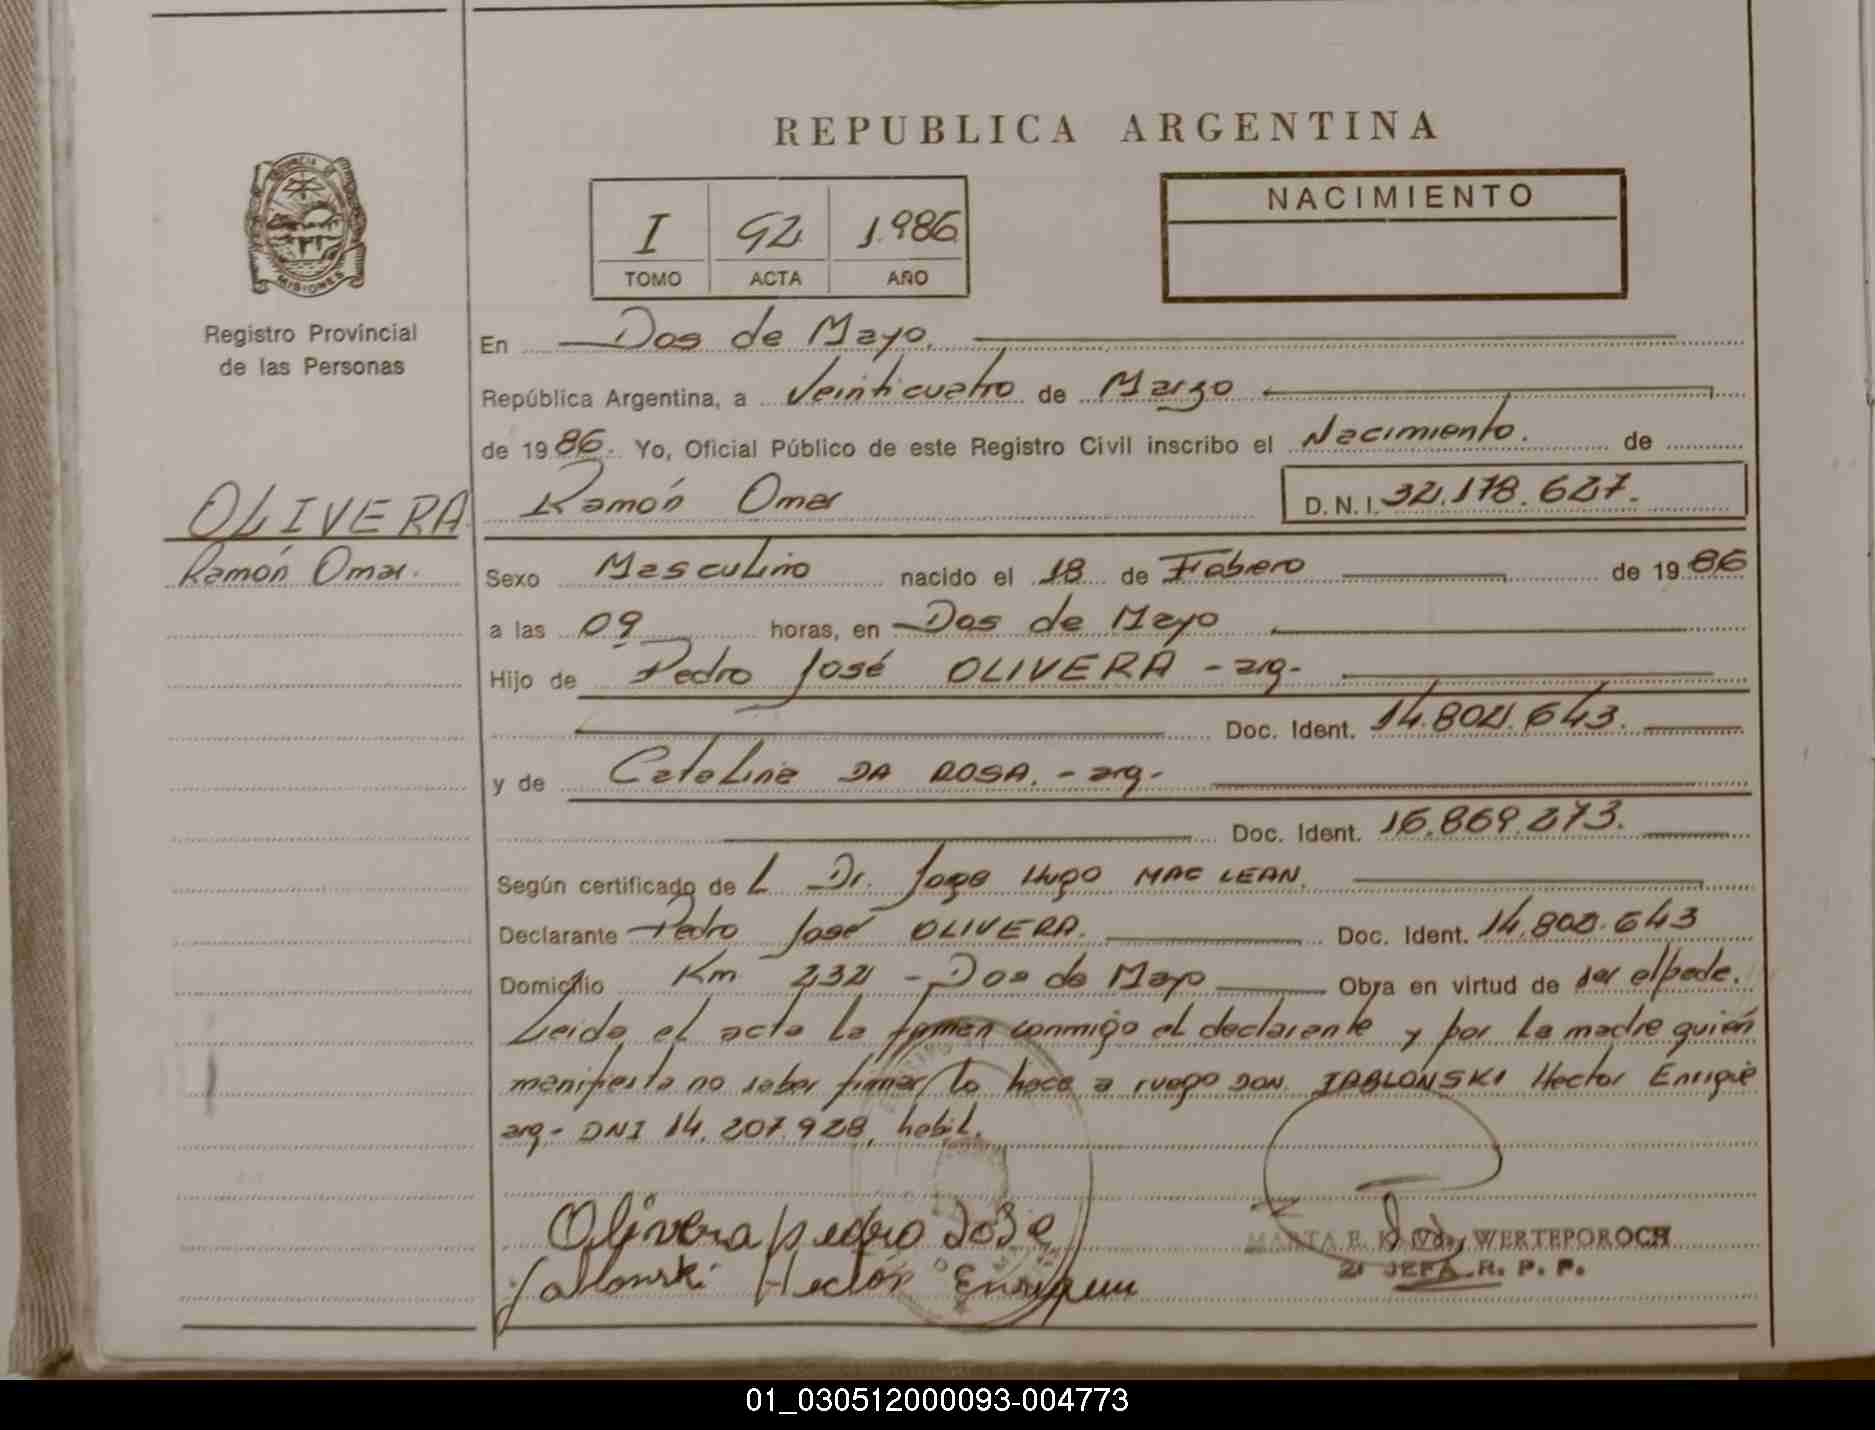 REPUBLICA ARGENTINA
PROVINCIA DE
MISIONES
Registro Provincial
de las Personas
I 92 1.986
TOMO ACTA AÑO
NACIMIENTO
En Dos de Mayo.
República Argentina, a Veinticuatro de Marzo
de 1986. Yo, Oficial Público de este Registro Civil inscribo el Nacimiento. de
OLIVERA
Ramón Omar.
Ramón Omar D. N. I. 32.178.627.
Sexo Masculino nacido el 18 de Febero de 1986
a las 09 horas, en Dos de Mayo
Hijo de Pedro José OLIVERA - arg-
Doc. Ident. 14.802.643.
y de Catalina DA ROSA. - arg-
Doc. Ident. 16.869.273.
Según certificado de L Dr. Jorge Hugo MAC LEAN.
Declarante Pedro José OLIVERA. Doc. Ident. 14.802.643
Domicilio Km 232 - Dos de Mayo Obra en virtud de ser el padre.
Leida el acta la firman conmigo el declarante y por la madre quién
manifiesta no saber firmar lo hace a ruego DON. JABLONSKI Hector Enrique
arg- DNI 14.207.928, habil.
Olivera pedro Jose
Jablonski Hector Enrique
MARTA E. WERTEPOROCH
JEFA R. P. P.
01_030512000093-004773